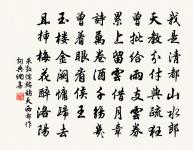 我是清都山水郎
天教分付與疏狂
曾批給雨支風券
累上留雲借月章
詩萬卷酒千觴幾
曾着眼看侯王
玉樓金闕慵歸去
且插梅花醉洛陽
朱敦儒鷓鴣天西都作
詞典網集